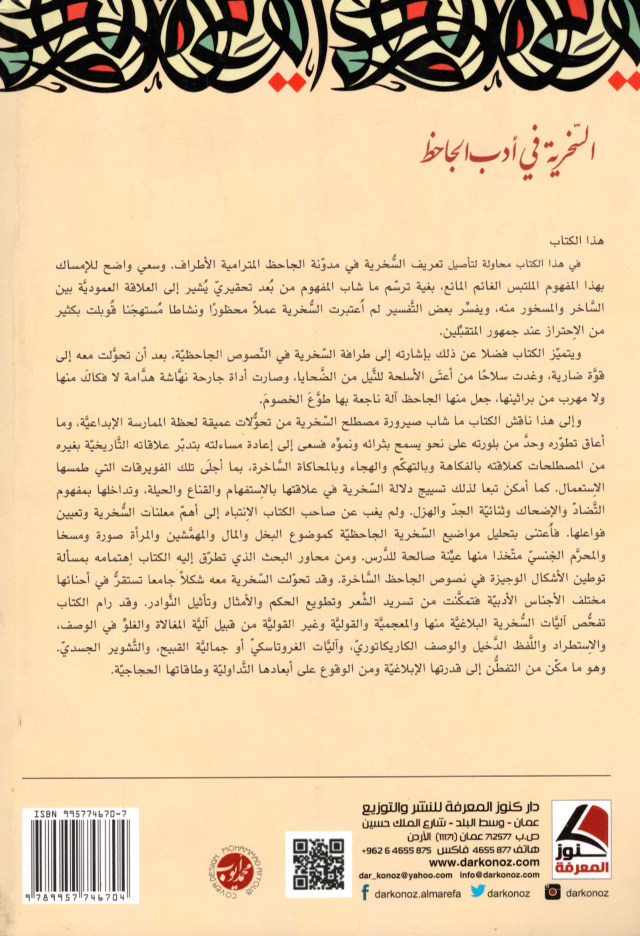 السّخرية في أدب الجاحظ
هذا الكتاب
في هذا الكتاب محاولة لتأصيل تعريف السُّخرية في مدوّنة الجاحظ المترامية الأطراف. وسعي واضح للإمساك
بهذا المفهوم الملتبس الغائم المائع، بغية ترسّم ما شاب المفهوم من بُعد تحقيريّ يُشير إلى العلاقة العموديّة بين
السَّاخر والمسخور منه، ويفسِّر بعض التَّفسير لم اُعتبرت السُّخرية عملاً محظورًا ونشاطا مُستهجَنا قُوبلت بكثير
من الاِحتراز عند جمهور المتقبِّلين.
ويتميّز الكتاب فضلا عن ذلك بإشارته إلى طرافة السِّخرية في النّصوص الجاحظيّة، بعد أن تحوَّلت معه إلى
قوَّة ضارية، وغدت سلاحًا من أعتَى الأسلحة للنَّيل من الضَّحايا، وصارت أداة جارحة نهَّاشة هدَّامة لا فكاكَ منها
ولا مهرب من براثينها، جعل منها الجاحظ آلة ناجعة بها طوَّعَ الخصومَ.
وإلى هذا ناقش الكتاب ما شاب صيرورة مصطلح السِّخرية من تحوُّلات عميقة لحظة الممارسة الإبداعيَّة، وما
أعاق تطوّره وحدَّ من بلورته على نحو يسمح بثرائه ونموِّه فسعى إلى إعادة مساءلته بتدبّر علاقاته التَّاريخيَّة بغيره
من المصطلحات كعلاقته بالفكاهة وبالتهكُّم والهجاء وبالمحاكاة السَّاخرة، بما أجلَى تلك الفويرقات التي طمسها
الاستعمال. كما أمكن تبعا لذلك تسييج دلالة السِّخرية في علاقتها بالاِستفهام والقناع والحيلة، وتداخلها بمفهوم
التَّضادّ والإضحاك وثنائيّة الجدّ والهزل. ولم يغب عن صاحب الكتاب الاِنتباه إلى أهمّ معلنات السُّخرية وتعيين
فواعلها. فاُعتنى بتحليل مواضيع السِّخرية الجاحظيَّة كموضوع البخل والمال والمهمَّشين والمرأة صورة ومسخا
والمحرَّم الجَنسيّ متّخذا منها عيِّنة صالحة للدَّرس. ومن محاور البحث الذي تطرَّق إليه الكتاب اِهتمامه بمسألة
توطين الأشكال الوجيزة في نصوص الجاحظ السَّاخرة. وقد تحوّلت السِّخرية معه شكلاً جامعا تستقرُّ في أحنائها
مختلف الأجناس الأدبيَّة فتمكَّنت من تسريد الشِّعر وتطويع الحكم والأمثال وتأثيل النَّوادر. وقد رام الكتاب
تفحُّص آليَّات السخرية البلاغيَّة منها والمعجميَّة والقوليَّة وغير القوليَّة من قبيل آليَّة المغالاة والغلوّ في الوصف،
والاِستطراد واللَّفظ الدَّخيل والوصف الكاريكاتوريّ، وآليَّات الغروتاسكيّ أو جماليَّة القبيح، والتَّشوير الجسديّ.
وهو ما مكّن من التفطُّن إلى قدرتها الإبلاغيَّة ومن الوقوع على أبعادها التَّداوليّة وطاقاتها الحجاجيّة.
دار كنوز المعرفة للنشر والتوزيع
عمان - وسط البلد - شارع الملك حسين
ص.ب 712577 عمان (11171) الأردن
هاتف 877 4655 فاكس 875 4655 6 962+
www.darkonoz.com
dar_konoz@yahoo.com info@darkonoz.com
darkonoz.almarefa darkonoz darkonoz
كنوز
المعرفة
COVER DESIGN MOHAMMAD AYYOUB
محمد أيوب
ISBN 995774670-7
9 789957 746704